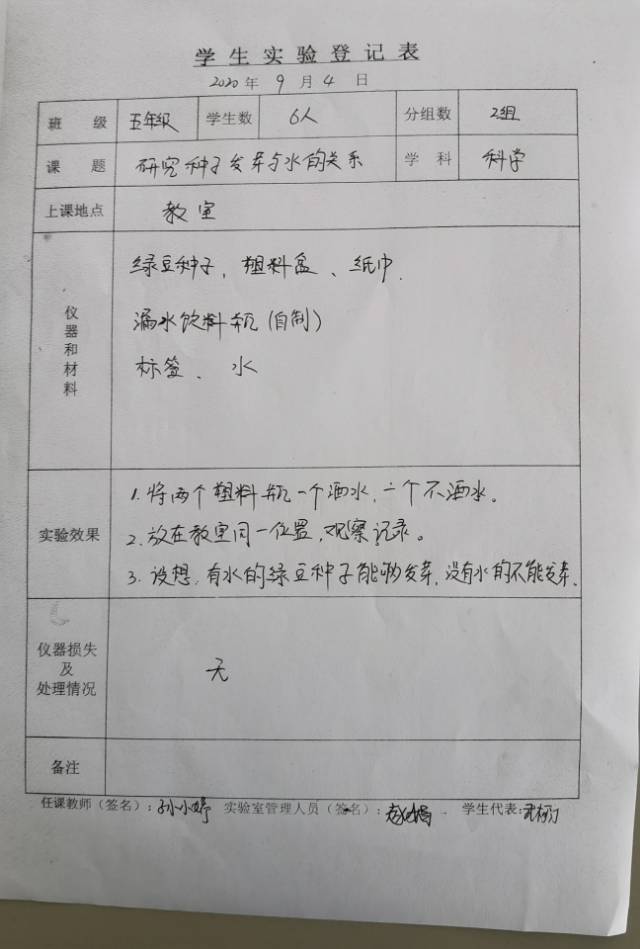 学生实验登记表
2020年 9 月 4 日
班 级 五年级 学生数 6人 分组数 2组
课 题 研究种子发芽与水的关系 学 科 科学
上课地点 教室
仪器和材料
绿豆种子，塑料盒、纸巾.
漏水饮料瓶(自制)
标签、水
实验效果
1.将两个塑料瓶一个洒水,一个不洒水。
2.放在教室同一位置,观察记录。
3.设想,有水的绿豆种子能够发芽,没有水的不能发芽.
仪器损失
及
处理情况
无
备注
任课教师（签名）：孙小婷 实验室管理人员（签名）： 学生代表: